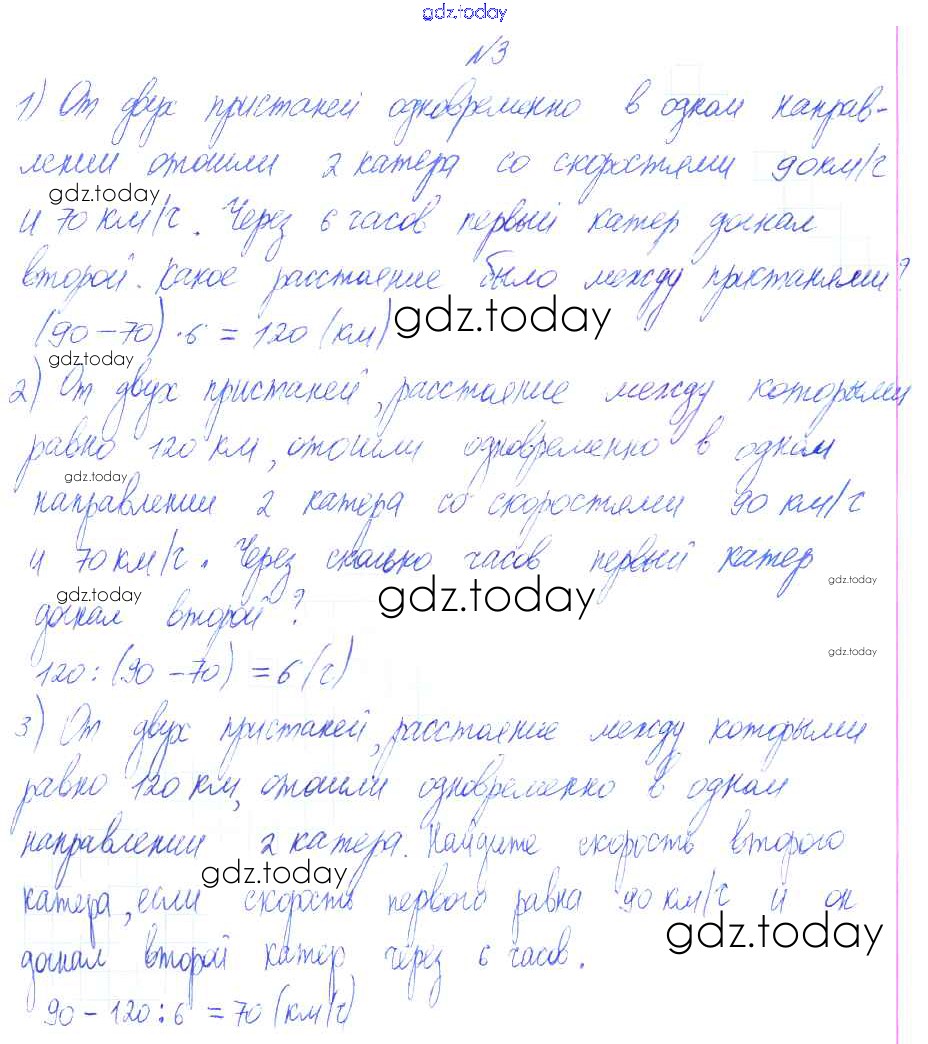 gdz.today
№3
1) От двух пристаней одновременно в одном направ-
лении отошли 2 катера со скоростями 90 км/ч
gdz.today
и 70 км/ч. Через 6 часов первый катер догнал
второй. Какое расстояние было между пристанями?
(90 - 70) · 6 = 120 (км)
gdz.today
gdz.today
2) От двух пристаней, расстояние между которыми
равно 120 км, отошли одновременно в одном
gdz.today
направлении 2 катера со скоростями 90 км/ч
и 70 км/ч. Через сколько часов первый катер
gdz.today
gdz.today
gdz.today
догнал второй?
gdz.today
120 : (90 - 70) = 6 (ч)
3) От двух пристаней, расстояние между которыми
равно 120 км, отошли одновременно в одном
направлении 2 катера. Найдите скорость второго
gdz.today
катера, если скорость первого равна 90 км/ч и он
gdz.today
догнал второй катер через 6 часов.
90 - 120 : 6 = 70 (км/ч)